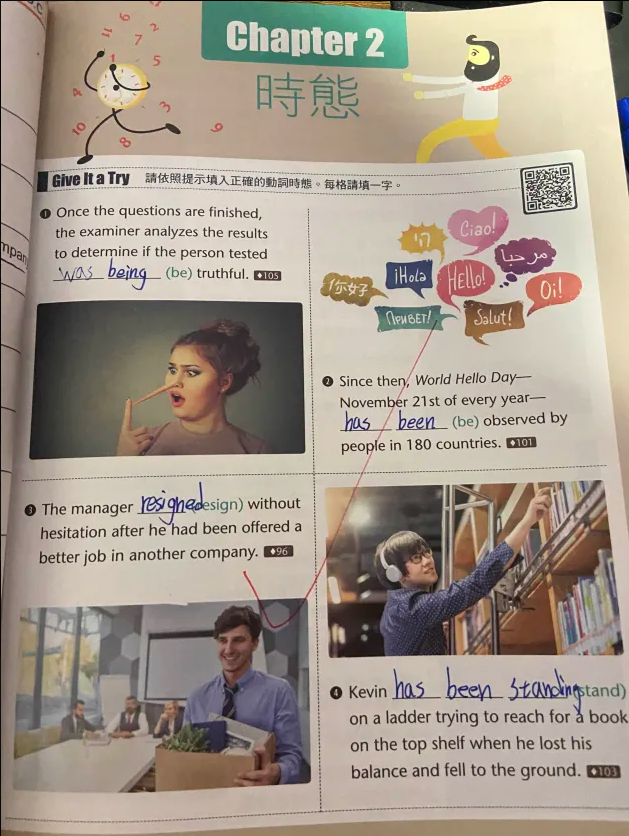 Chapter 2
時態
Give It a Try 請依照提示填入正確的動詞時態。每格請填一字。
❶ Once the questions are finished,
the examiner analyzes the results
to determine if the person tested
was being (be) truthful. ♦105
Ciao!
你好
¡Hola
Hello!
مرحبا
Oi!
ПРИВЕТ!
Salut!
❷ Since then, World Hello Day—
November 21st of every year—
has been (be) observed by
people in 180 countries. ♦101
❸ The manager resigned esign) without
hesitation after he had been offered a
better job in another company. ♦96
❹ Kevin has been standing stand)
on a ladder trying to reach for a book
on the top shelf when he lost his
balance and fell to the ground. ♦103